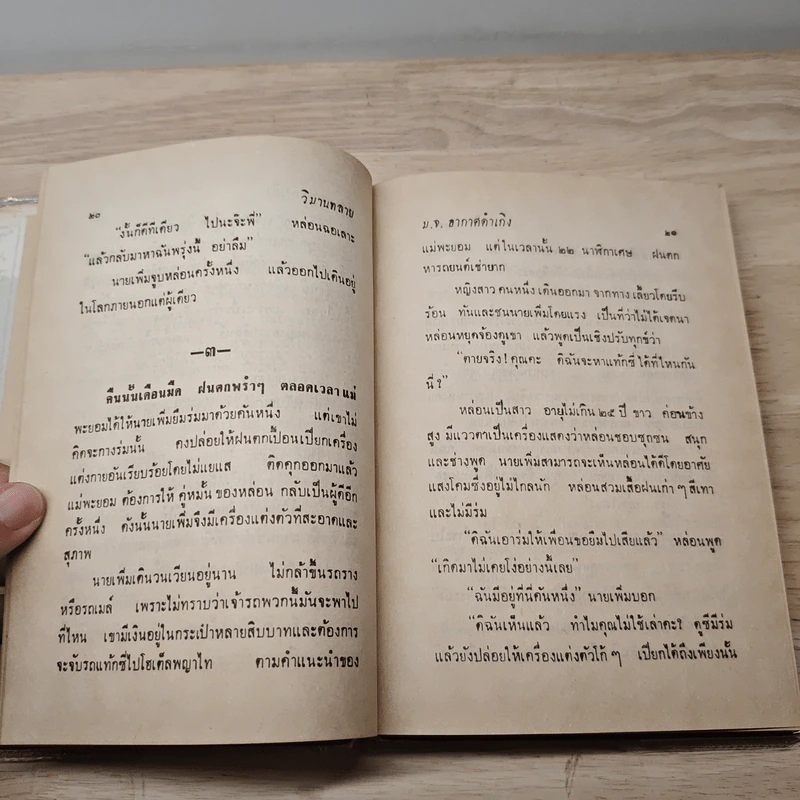 ๒๐
วิมานทลาย
“งั้นก็ดีทีเดียว ไปนะจ๊ะพี่” หล่อนฉอเลาะ
“แล้วกลับมาหาฉันพรุ่งนี้ อย่าลืม”
นายเพิ่มจูบหล่อนครั้งหนึ่ง แล้วออกไปเดินอยู่
ในโลกภายนอกแต่ผู้เดียว
—๓—
คืนนั้นเดือนมืด ฝนตกพรำๆ ตลอดเวลา แม่
พะยอมได้ให้นายเพิ่มยืมร่มมาด้วยคันหนึ่ง แต่เขาไม่
คิดจะกางร่มนั้น คงปล่อยให้ฝนตกเปื้อนเปียกเครื่อง
แต่งกายอันเรียบร้อยโดยไม่แยแส ติดคุกออกมาแล้ว
แม่พะยอม ต้องการให้ คู่หมั้น ของหล่อน กลับเป็นผู้ดีอีก
ครั้งหนึ่ง ดังนั้นนายเพิ่มจึงมีเครื่องแต่งตัวที่สะอาดและ
สุภาพ
นายเพิ่มเดินวนเวียนอยู่นาน ไม่กล้าขึ้นรถราง
หรือรถเมล์ เพราะไม่ทราบว่าเจ้ารถพวกนี้มันจะพาไป
ที่ไหน เขามีเงินอยู่ในกระเป๋าหลายสิบบาทและต้องการ
จะจับรถแท้กซี่ไปโฮเต็ลพญาไท ตามคำแนะนำของ
ม.จ. อากาศดำเกิง
๒๑
แม่พะยอม แต่ในเวลานั้น ๒๒ นาฬิกาเศษ ฝนตก
หารถยนต์เช่ายาก
หญิงสาว คนหนึ่ง เดินออกมา จากทาง เลี้ยวโดยรีบ
ร้อน ทันและชนนายเพิ่มโดยแรง เป็นที่ว่าไม่ได้เจตนา
หล่อนหยุดจ้องดูเขา แล้วพูดเป็นเชิงปรับทุกข์ว่า
“ตายจริง! คุณคะ ดิฉันจะหาแท้กซี่ได้ที่ไหนกัน
นี่?”
หล่อนเป็นสาว อายุไม่เกิน ๒๕ ปี ขาว ค่อนข้าง
สูง มีแววตาเป็นเครื่องแสดงว่าหล่อนชอบซุกซน สนุก
และช่างพูด นายเพิ่มสามารถจะเห็นหล่อนได้ดีโดยอาศัย
แสงโคมซึ่งอยู่ไม่ไกลนัก หล่อนสวมเสื้อฝนเก่า ๆ สีเทา
และไม่มีร่ม
“ดิฉันเอาร่มให้เพื่อนขอยืมไปเสียแล้ว” หล่อนพูด
“เกิดมาไม่เคยโง่อย่างนี้เลย”
“ฉันมีอยู่ที่นี่คันหนึ่ง” นายเพิ่มบอก
“ดิฉันเห็นแล้ว ทำไมคุณไม่ใช้เล่าคะ? ดูซีมีร่ม
แล้วยังปล่อยให้เครื่องแต่งตัวโก้ ๆ เปียกได้ถึงเพียงนั้น